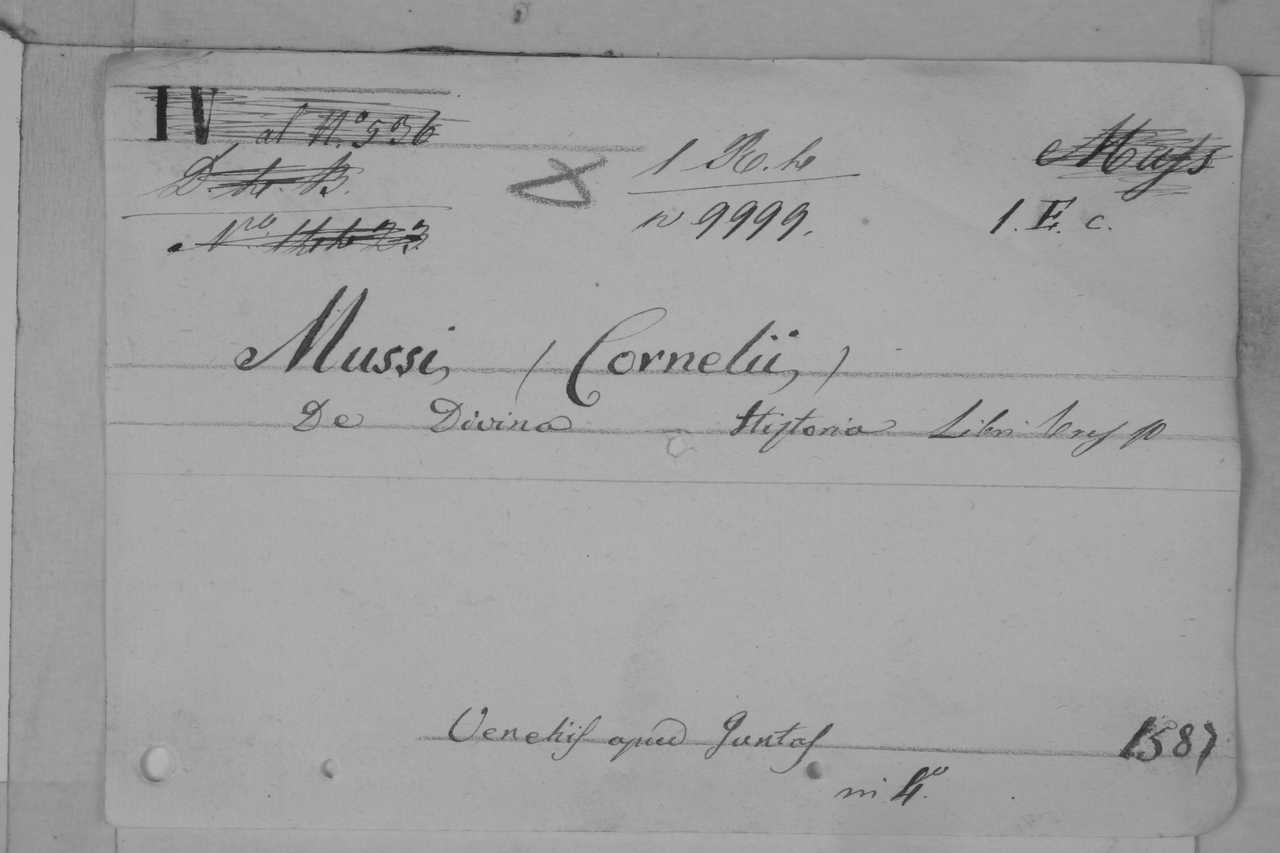 IV al N.o 536
D. h. B.
1 R. h
n 9999.
1. E. c.
Mussi, (Cornelii,)
De Divina Historia Libri tres p
Venetiis apud Juntas 1587
in 4.o